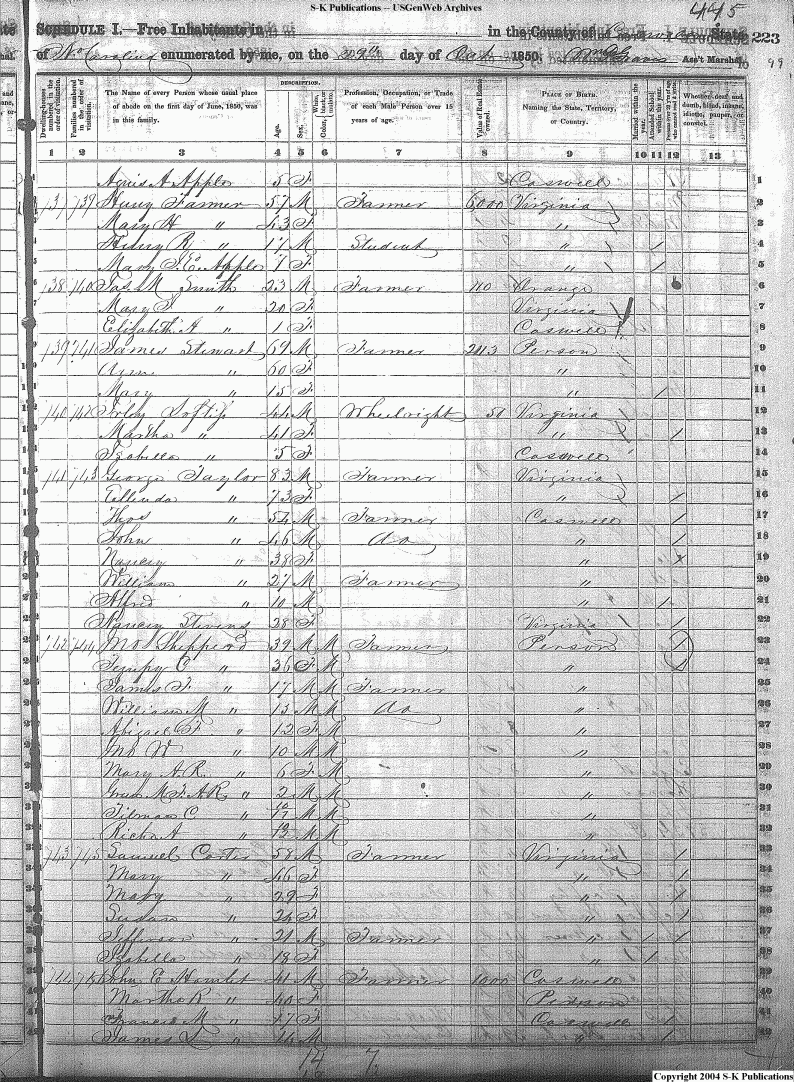 S-K Publications -- USGenWeb Archives
445
SCHEDULE I.—Free Inhabitants in in the County of State 223
of No Carolina enumerated by me, on the 29th day of Oct 1850. Ass't Marshal. 99
Dwelling-houses numbered in the order of visitation.
Families numbered in the order of visitation.
The Name of every Person whose usual place of abode on the first day of June, 1850, was in this family.
DESCRIPTION.
Age.
Sex.
Color, White, black, or mulatto.
Profession, Occupation, or Trade of each Male Person over 15 years of age.
Value of Real Estate owned.
PLACE OF BIRTH. Naming the State, Territory, or Country.
Married within the year.
Attended School within the year.
Persons over 20 y'rs of age who cannot read & write.
Whether deaf and dumb, blind, insane, idiotic, pauper, or convict.
1 2 3 4 5 6 7 8 9 10 11 12 13
A Apple 5 F Caswell / 1
737 739 Henry Farmer 57 M Farmer 6,000 Virginia 2
Mary H " 43 F " 3
Henry R " 17 M Student " / 4
Mary S. E. Apple 7 F " / 5
738 740 Jas M Smith 23 M Farmer 110 Orange 6
Mary F " 20 F Virginia 7
Elizabeth A " 1 F Caswell 8
739 741 James Stewart 69 M Farmer 2113 Person 9
" 60 F " 10
Mary " 15 F " / 11
740 742 44 M Wheelwright 51 Virginia 12
Martha " 41 F " / 13
Isabella " 5 F Caswell 14
741 743 George Taylor 83 M Farmer Virginia 15
" 73 F " / 16
Thos " 54 M Farmer Caswell / 17
John " 46 M do " / 18
Nancy " 38 F " / 19
William " 27 M Farmer " 20
Alfred " 10 M " / 21
Nancy Stevens 38 F Virginia / 22
742 744 Jno Shepperd 39 M M Farmer Person / 23
C " 36 F M " / 24
James F. " 17 M M Farmer " 25
William M " 13 M M do " 26
Abigail F. " 12 F M " 27
Jno W " 10 M M " 28
Mary A. R. " 6 F M " 29
M. F. A R " 2 M M " 30
Tilman C " M M " 31
Richd A M M " 32
743 745 Samuel Carter 58 M Farmer Virginia / 33
Mary " 46 F " / 34
Mary " 29 F " / 35
Susan " 24 F " / 36
Jefferson " 21 M Farmer " / / 37
Isabella " 18 F " / 38
744 746 John E Hamlet 41 M Farmer 1000 Caswell 39
Martha R " 40 F Person 40
Francis M " 17 F Caswell / 41
James L " 14 M " / 42
14 7
Copyright 2004 S-K Publications